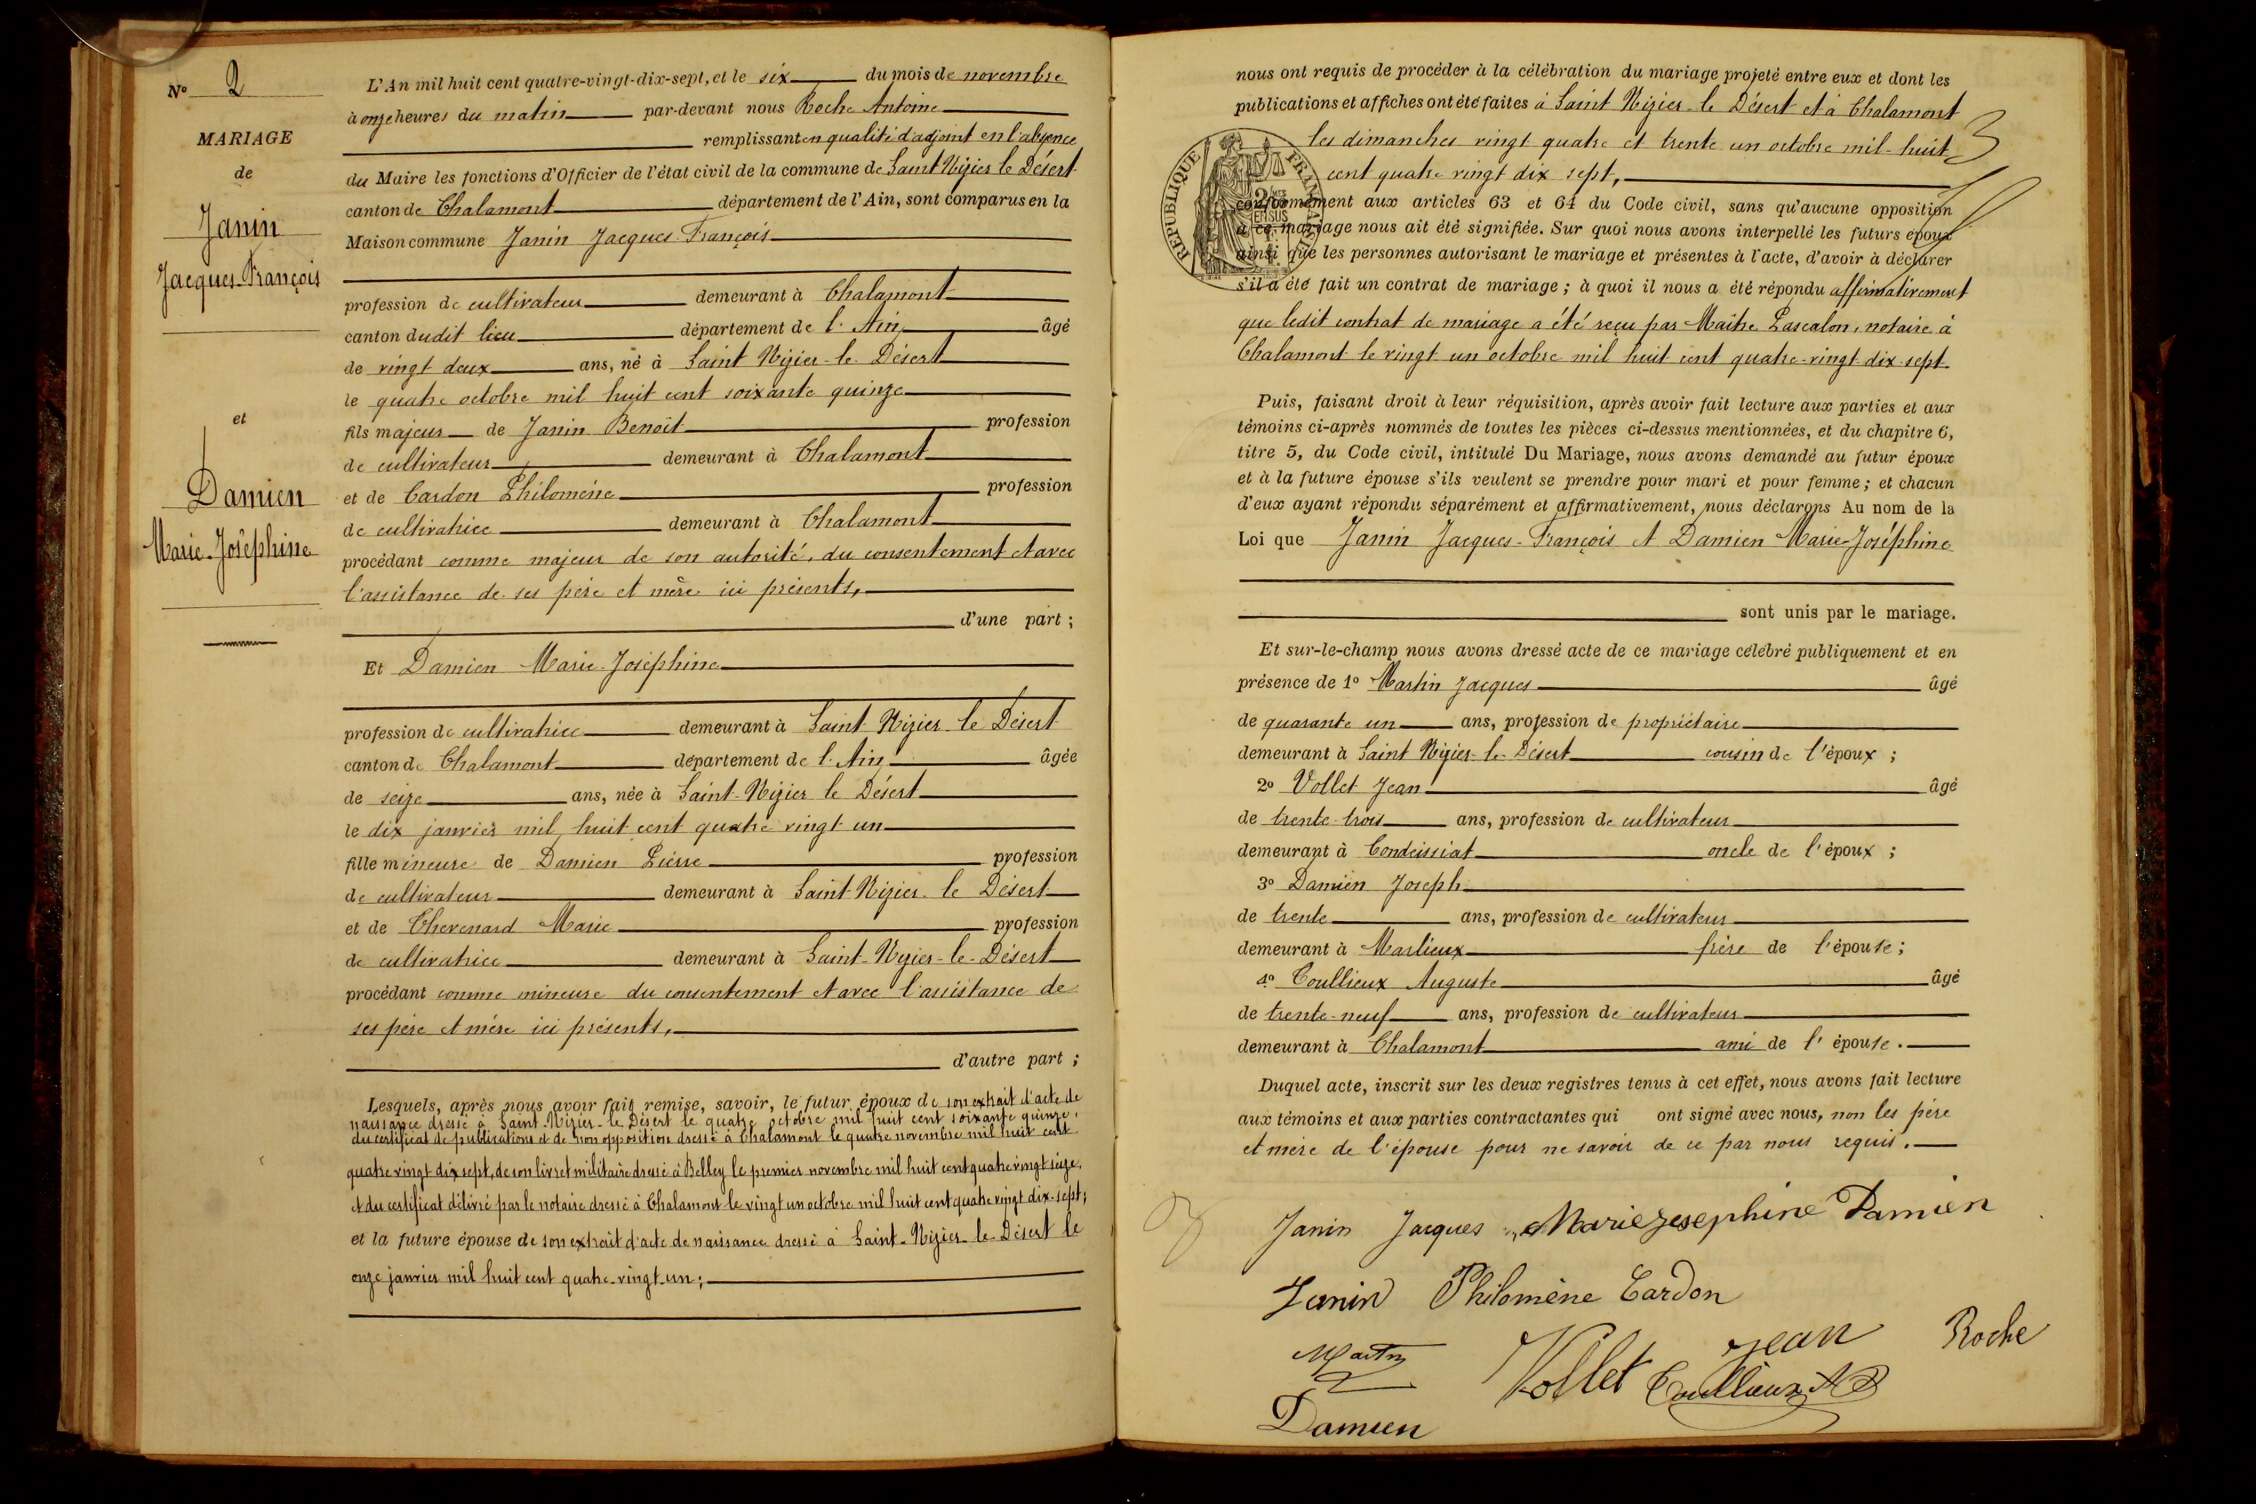 N° 2
MARIAGE
de
Janin
Jacques-François
et
Damien
Marie-Joséphine
L'An mil huit cent quatre-vingt-dix-sept, et le six du mois de novembre
à onze heures du matin par-devant nous Roche Antoine
remplissant en qualité d'adjoint en l'absence
du Maire les fonctions d'Officier de l'état civil de la commune de Saint Nizier le Désert
canton de Chalamont département de l'Ain, sont comparus en la
Maison commune Janin Jacques-François
profession de cultivateur demeurant à Chalamont
canton dudit lieu département de l'Ain âgé
de vingt deux ans, né à Saint Nizier-le-Désert
le quatre octobre mil huit cent soixante quinze
fils majeur de Janin Benoit profession
de cultivateur demeurant à Chalamont
et de Cardon Philomène profession
de cultivatrice demeurant à Chalamont
procédant comme majeur de son autorité, du consentement et avec
l'assistance de ses père et mère ici présents,
d'une part ;
Et Damien Marie-Joséphine
profession de cultivatrice demeurant à Saint-Nizier-le-Désert
canton de Chalamont département de l'Ain âgée
de seize ans, née à Saint-Nizier le Désert
le dix janvier mil huit cent quatre vingt un
fille mineure de Damien Pierre profession
de cultivateur demeurant à Saint-Nizier-le Désert
et de Chevenard Marie profession
de cultivatrice demeurant à Saint-Nizier-le-Désert
procédant comme mineure du consentement et avec l'assistance de
ses père et mère ici présents,
d'autre part ;
Lesquels, après nous avoir fait remise, savoir, le futur époux de son extrait d'acte de
naissance dressé à Saint-Nizier-le Désert le quatre octobre mil huit cent soixante quinze,
du certificat de publications et de non opposition dressé à Chalamont le quatre novembre mil huit cent
quatre vingt dix sept, de son livret militaire dressé à Belley le premier novembre mil huit cent quatre vingt seize,
et du certificat délivré par le notaire dressé à Chalamont le vingt un octobre mil huit cent quatre vingt dix-sept ;
et la future épouse de son extrait d'acte de naissance dressé à Saint-Nizier-le-Désert le
onze janvier mil huit cent quatre-vingt-un ;
nous ont requis de procéder à la célébration du mariage projeté entre eux et dont les
publications et affiches ont été faites à Saint Nizier-le Désert et à Chalamont
les dimanches vingt quatre et trente un octobre mil-huit
cent quatre vingt dix sept,
RÉPUBLIQUE FRANÇAISE
conformément aux articles 63 et 64 du Code civil, sans qu'aucune opposition
à ce mariage nous ait été signifiée. Sur quoi nous avons interpellé les futurs époux
ainsi que les personnes autorisant le mariage et présentes à l'acte, d'avoir à déclarer
s'il a été fait un contrat de mariage ; à quoi il nous a été répondu affirmativement
que ledit contrat de mariage a été reçu par Maître Lascalon, notaire à
Chalamont le vingt un octobre mil huit cent quatre-vingt dix-sept.
Puis, faisant droit à leur réquisition, après avoir fait lecture aux parties et aux
témoins ci-après nommés de toutes les pièces ci-dessus mentionnées, et du chapitre 6,
titre 5, du Code civil, intitulé Du Mariage, nous avons demandé au futur époux
et à la future épouse s'ils veulent se prendre pour mari et pour femme ; et chacun
d'eux ayant répondu séparément et affirmativement, nous déclarons Au nom de la
Loi que Janin Jacques-François et Damien Marie-Joséphine
sont unis par le mariage.
Et sur-le-champ nous avons dressé acte de ce mariage célébré publiquement et en
présence de 1° Martin Jacques âgé
de quarante un ans, profession de propriétaire
demeurant à Saint Nizier-le-Désert cousin de l'époux ;
2° Vollet Jean âgé
de trente-trois ans, profession de cultivateur
demeurant à Condeissiat oncle de l'époux ;
3° Damien Joseph
de trente ans, profession de cultivateur
demeurant à Marlieux frère de l'épouse ;
4° Coullieux Auguste âgé
de trente-neuf ans, profession de cultivateur
demeurant à Chalamont ami de l'épouse.
Duquel acte, inscrit sur les deux registres tenus à cet effet, nous avons fait lecture
aux témoins et aux parties contractantes qui ont signé avec nous, non les père
et mère de l'épouse pour ne savoir de ce par nous requis.
Janin Jacques Marie Josephine Damien
Janin Philomène Cardon
Martin Vollet Jean Coullieux Roche
Damien